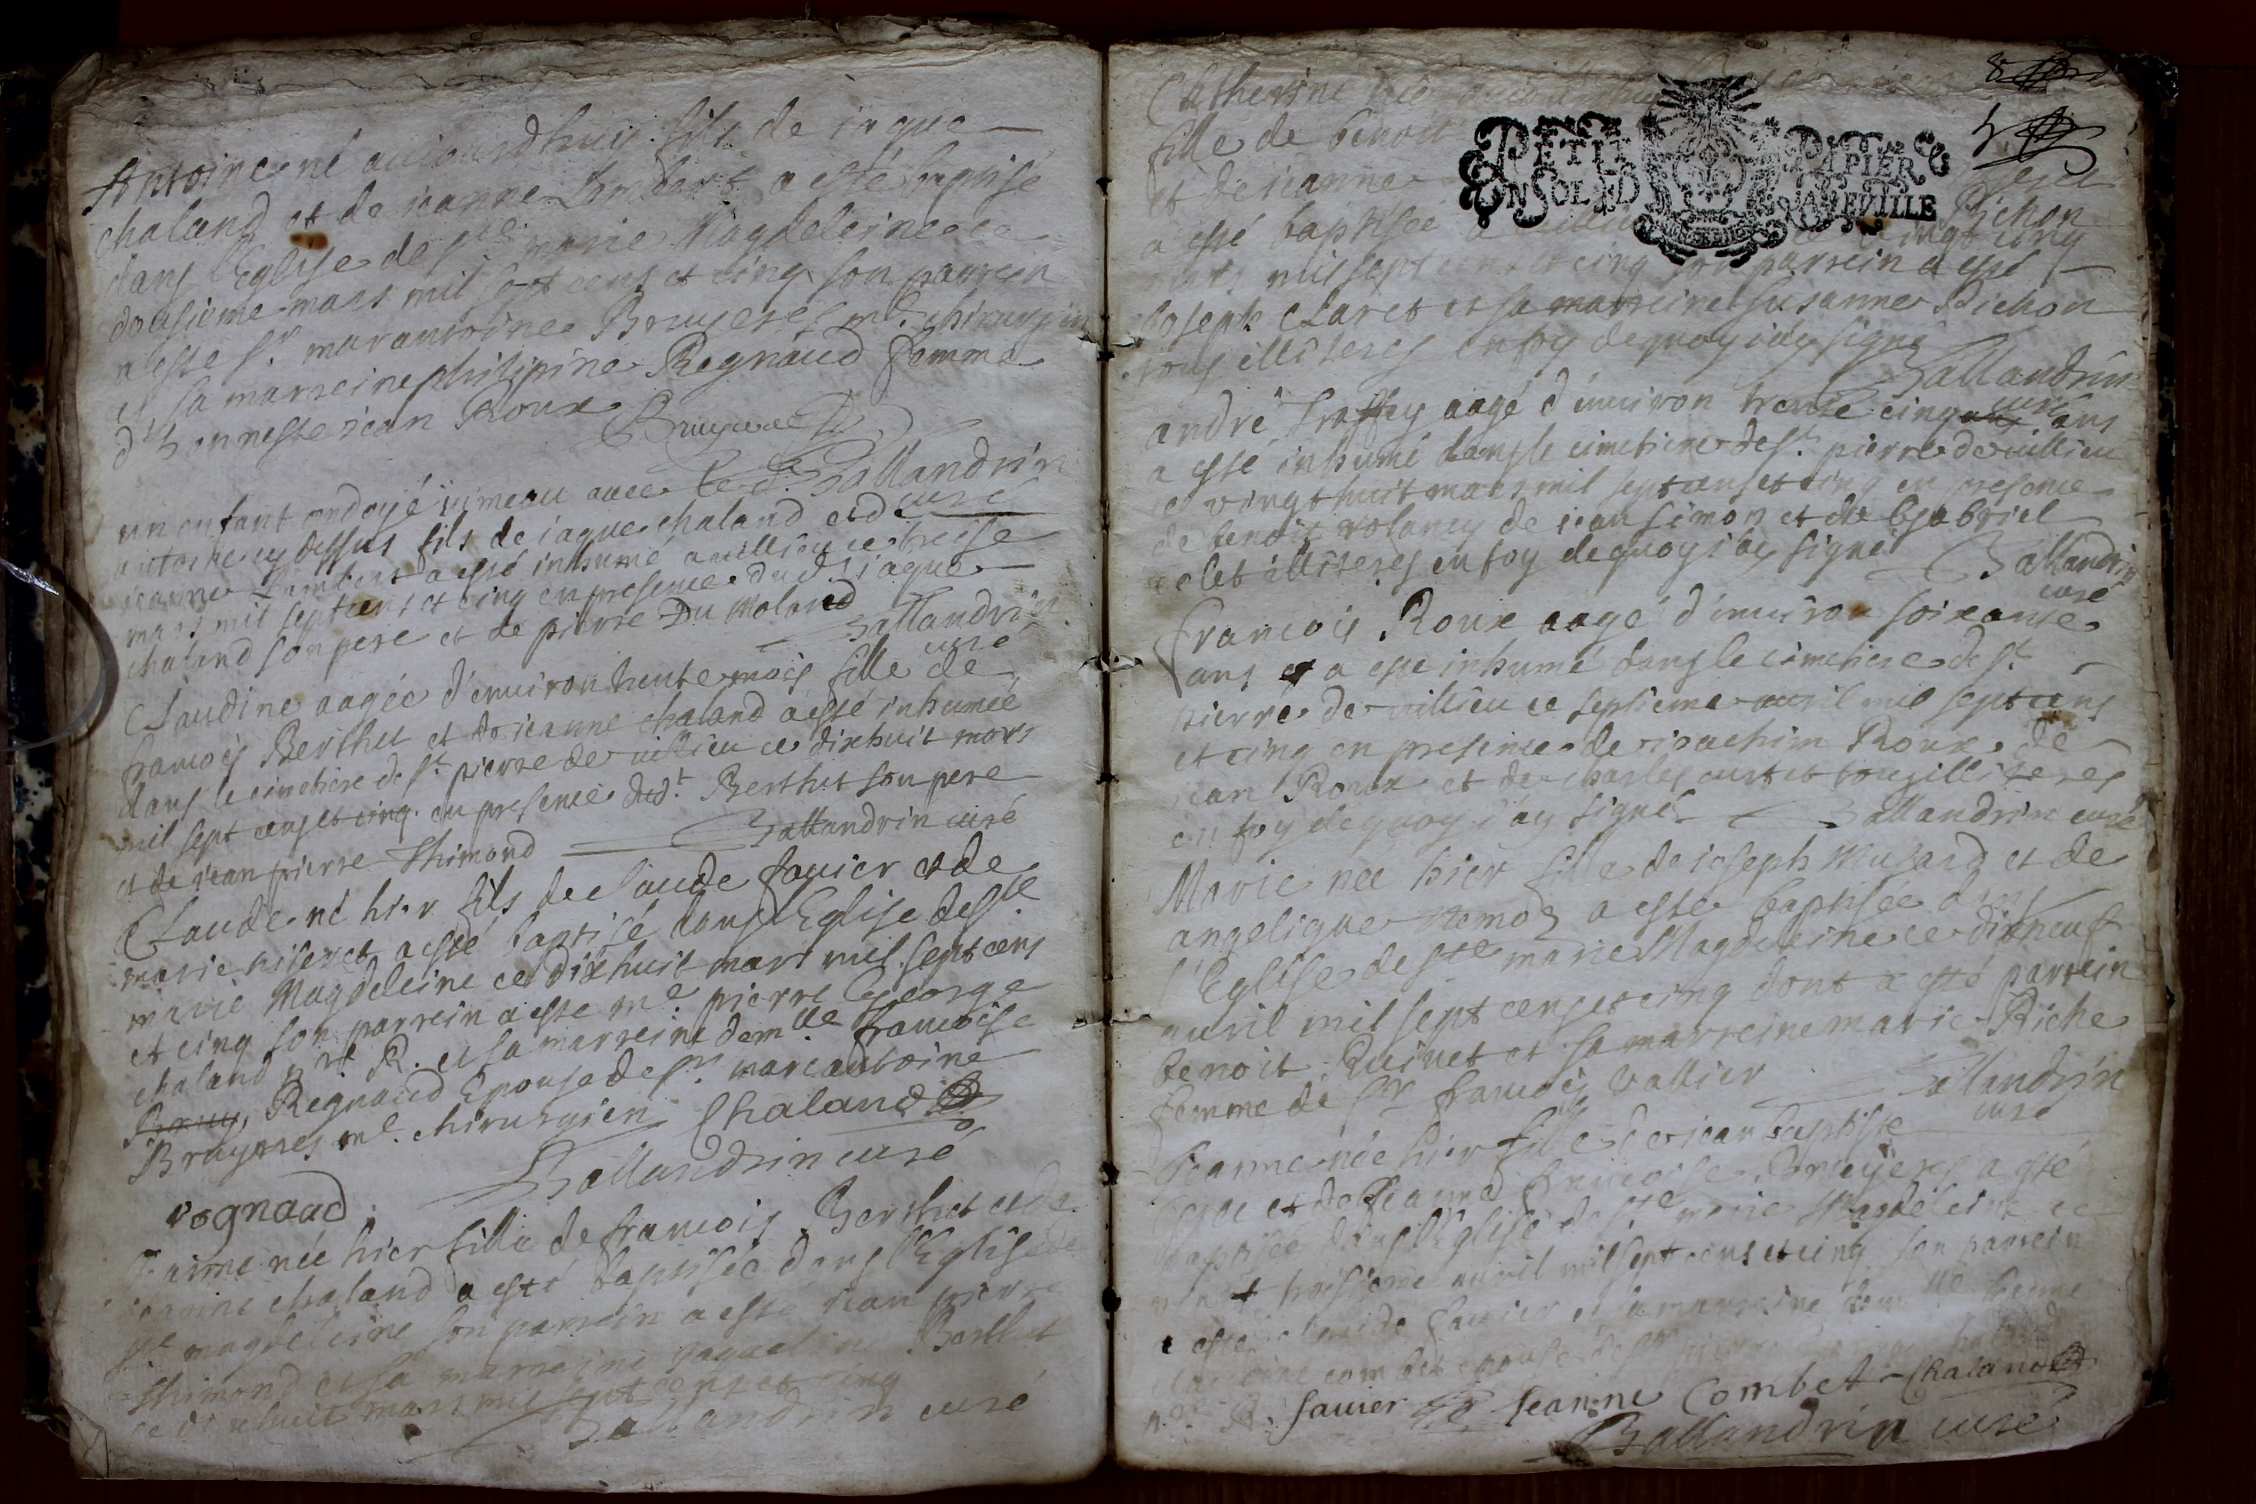 Antoine né aujourdhuy fils de iaque
chaland et de ieanne Lombart a esté baptisé
dans l'Eglise de ste marie Magdeleine ce
dousieme mars mil sept cens et cinq son parrein
a esté sr. marc antoine Bruyeres me. chirurgien
et sa marreine philipine Regnaud femme
d'honneste iean Roux
Bruyere
Ballandrin
curé
un enfant ondoyé iumeau avec le d.
antoine cy dessus fils de iaque chaland et de
ieanne Lombart a esté inhumé a villieu ce treise
mars mil sept cens et cinq en presence dud. iaque
chaland son pere et de pierre Du Molard
Ballandrin
curé
Claudine aagée d'environ trente mois fille de
francois Berthet et de ieanne chaland a esté inhumée
dans le cimetiere de st. pierre de villieu ce dixhuit mars
mil sept cens et cinq en presence dudt. Berthet son pere
et de iean pierre Thimond
Ballandrin curé
Claude né hier fils de Claude favier et de
marie a esté baptisé dans l'Eglise de ste
marie Magdeleine ce dixhuit mars mil sept cens
et cinq son parrein a esté me pierre George
chaland nre R. et sa marreine demlle francoise
Regnaud Epouse de sr. marc antoine
Bruyeres me. chirurgien
Chaland
Ballandrin curé
regnaud
née hier fille de francois Berthet et de
ieanne chaland a esté baptisée dans l'Eglise de
ste magdeleine son parrein a esté iean pierre
Thimond et sa marreine Berthet
ce dixhuit mars mil sept cens et cinq
Ballandrin curé
8
Catherine
fille de benoit
et de ieanne
PETIT PAPIER
UN SOL LA FEUILLE
a esté baptisée a Pichon
mars mil sept cens et cinq son parrein a esté vingt cinq
Joseph Claret et sa marreine Susanne Pichon
tous illiteres en foy dequoy i'ay signé
Ballandrin
curé
andré aagé d'environ trente cinq ans
a esté inhumé dans le cimetiere de st. pierre de villieu
ce vingt huit mars mil sept cens et cinq en presence
de benoit de iean simon et de Gabriel
illiteres en foy dequoy i'ay signé
Ballandrin
curé
francois Roux aagé d'environ soixante
ans a esté inhumé dans le cimetiere de st.
pierre de villieu ce septieme avril mil sept cens
et cinq en presence de ioachim Roux de
iean Roux et de charles tous illiteres
en foy dequoy i'ay signé
Ballandrin curé
Marie née hier fille de ioseph Muzard et de
angelique a esté baptisée dans
l'Eglise de ste marie Magdeleine ce dixneuf
avril mil sept cens et cinq dont a esté parrein
benoit Quinet et sa marreine marie Riche
femme de sr francois vallier
Ballandrin
curé
Jeanne née hier fille de iean baptiste
et de francoise Bruyeres a esté
baptisée dans l'Eglise de ste marie Magdeleine ce
vingt troisieme avril mil sept cens et cinq son parrein
a esté claude favier et sa marreine demlle
combet epouse de sr
favier Jeanne Combet Chaland
Ballandrin curé